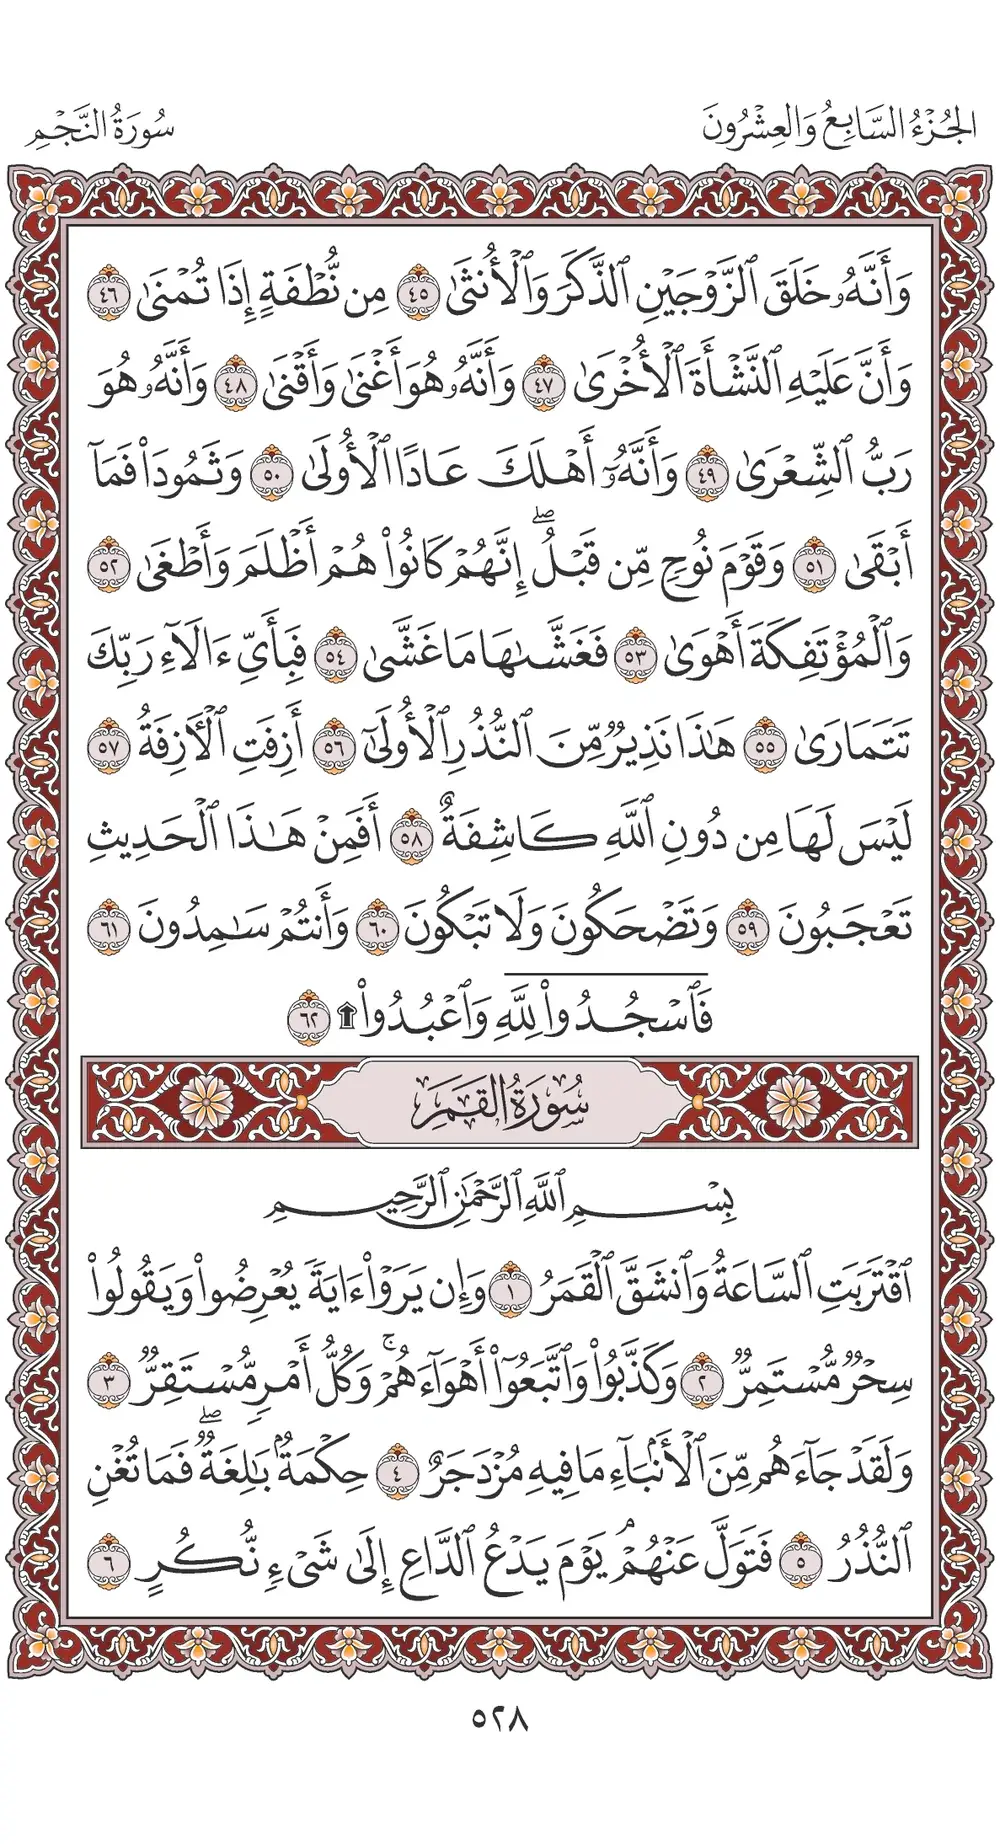 الجُزْءُ السَّابِعُ وَالعِشْرُونَ
سُورَةُ النَّجْمِ
وَأَنَّهُۥ خَلَقَ ٱلزَّوْجَيْنِ ٱلذَّكَرَ وَٱلْأُنثَىٰ ٤٥ مِن نُّطْفَةٍ إِذَا تُمْنَىٰ ٤٦
وَأَنَّ عَلَيْهِ ٱلنَّشْأَةَ ٱلْأُخْرَىٰ ٤٧ وَأَنَّهُۥ هُوَ أَغْنَىٰ وَأَقْنَىٰ ٤٨ وَأَنَّهُۥ هُوَ
رَبُّ ٱلشِّعْرَىٰ ٤٩ وَأَنَّهُۥٓ أَهْلَكَ عَادًا ٱلْأُولَىٰ ٥٠ وَثَمُودَا۟ فَمَآ
أَبْقَىٰ ٥١ وَقَوْمَ نُوحٍ مِّن قَبْلُ ۖ إِنَّهُمْ كَانُوا۟ هُمْ أَظْلَمَ وَأَطْغَىٰ ٥٢
وَٱلْمُؤْتَفِكَةَ أَهْوَىٰ ٥٣ فَغَشَّىٰهَا مَا غَشَّىٰ ٥٤ فَبِأَىِّ ءَالَآءِ رَبِّكَ
تَتَمَارَىٰ ٥٥ هَٰذَا نَذِيرٌ مِّنَ ٱلنُّذُرِ ٱلْأُولَىٰٓ ٥٦ أَزِفَتِ ٱلْءَازِفَةُ ٥٧
لَيْسَ لَهَا مِن دُونِ ٱللَّهِ كَاشِفَةٌ ٥٨ أَفَمِنْ هَٰذَا ٱلْحَدِيثِ
تَعْجَبُونَ ٥٩ وَتَضْحَكُونَ وَلَا تَبْكُونَ ٦٠ وَأَنتُمْ سَٰمِدُونَ ٦١
فَٱسْجُدُوا۟ لِلَّهِ وَٱعْبُدُوا۟ ۩ ٦٢
سُورَةُ القَمَرِ
بِسْمِ ٱللَّهِ ٱلرَّحْمَٰنِ ٱلرَّحِيمِ
ٱقْتَرَبَتِ ٱلسَّاعَةُ وَٱنشَقَّ ٱلْقَمَرُ ١ وَإِن يَرَوْا۟ ءَايَةً يُعْرِضُوا۟ وَيَقُولُوا۟
سِحْرٌ مُّسْتَمِرٌّ ٢ وَكَذَّبُوا۟ وَٱتَّبَعُوٓا۟ أَهْوَآءَهُمْ ۚ وَكُلُّ أَمْرٍ مُّسْتَقِرٌّ ٣
وَلَقَدْ جَآءَهُم مِّنَ ٱلْأَنۢبَآءِ مَا فِيهِ مُزْدَجَرٌ ٤ حِكْمَةٌۢ بَٰلِغَةٌ ۖ فَمَا تُغْنِ
ٱلنُّذُرُ ٥ فَتَوَلَّ عَنْهُمْ ۘ يَوْمَ يَدْعُ ٱلدَّاعِ إِلَىٰ شَىْءٍ نُّكُرٍ ٦
٥٢٨